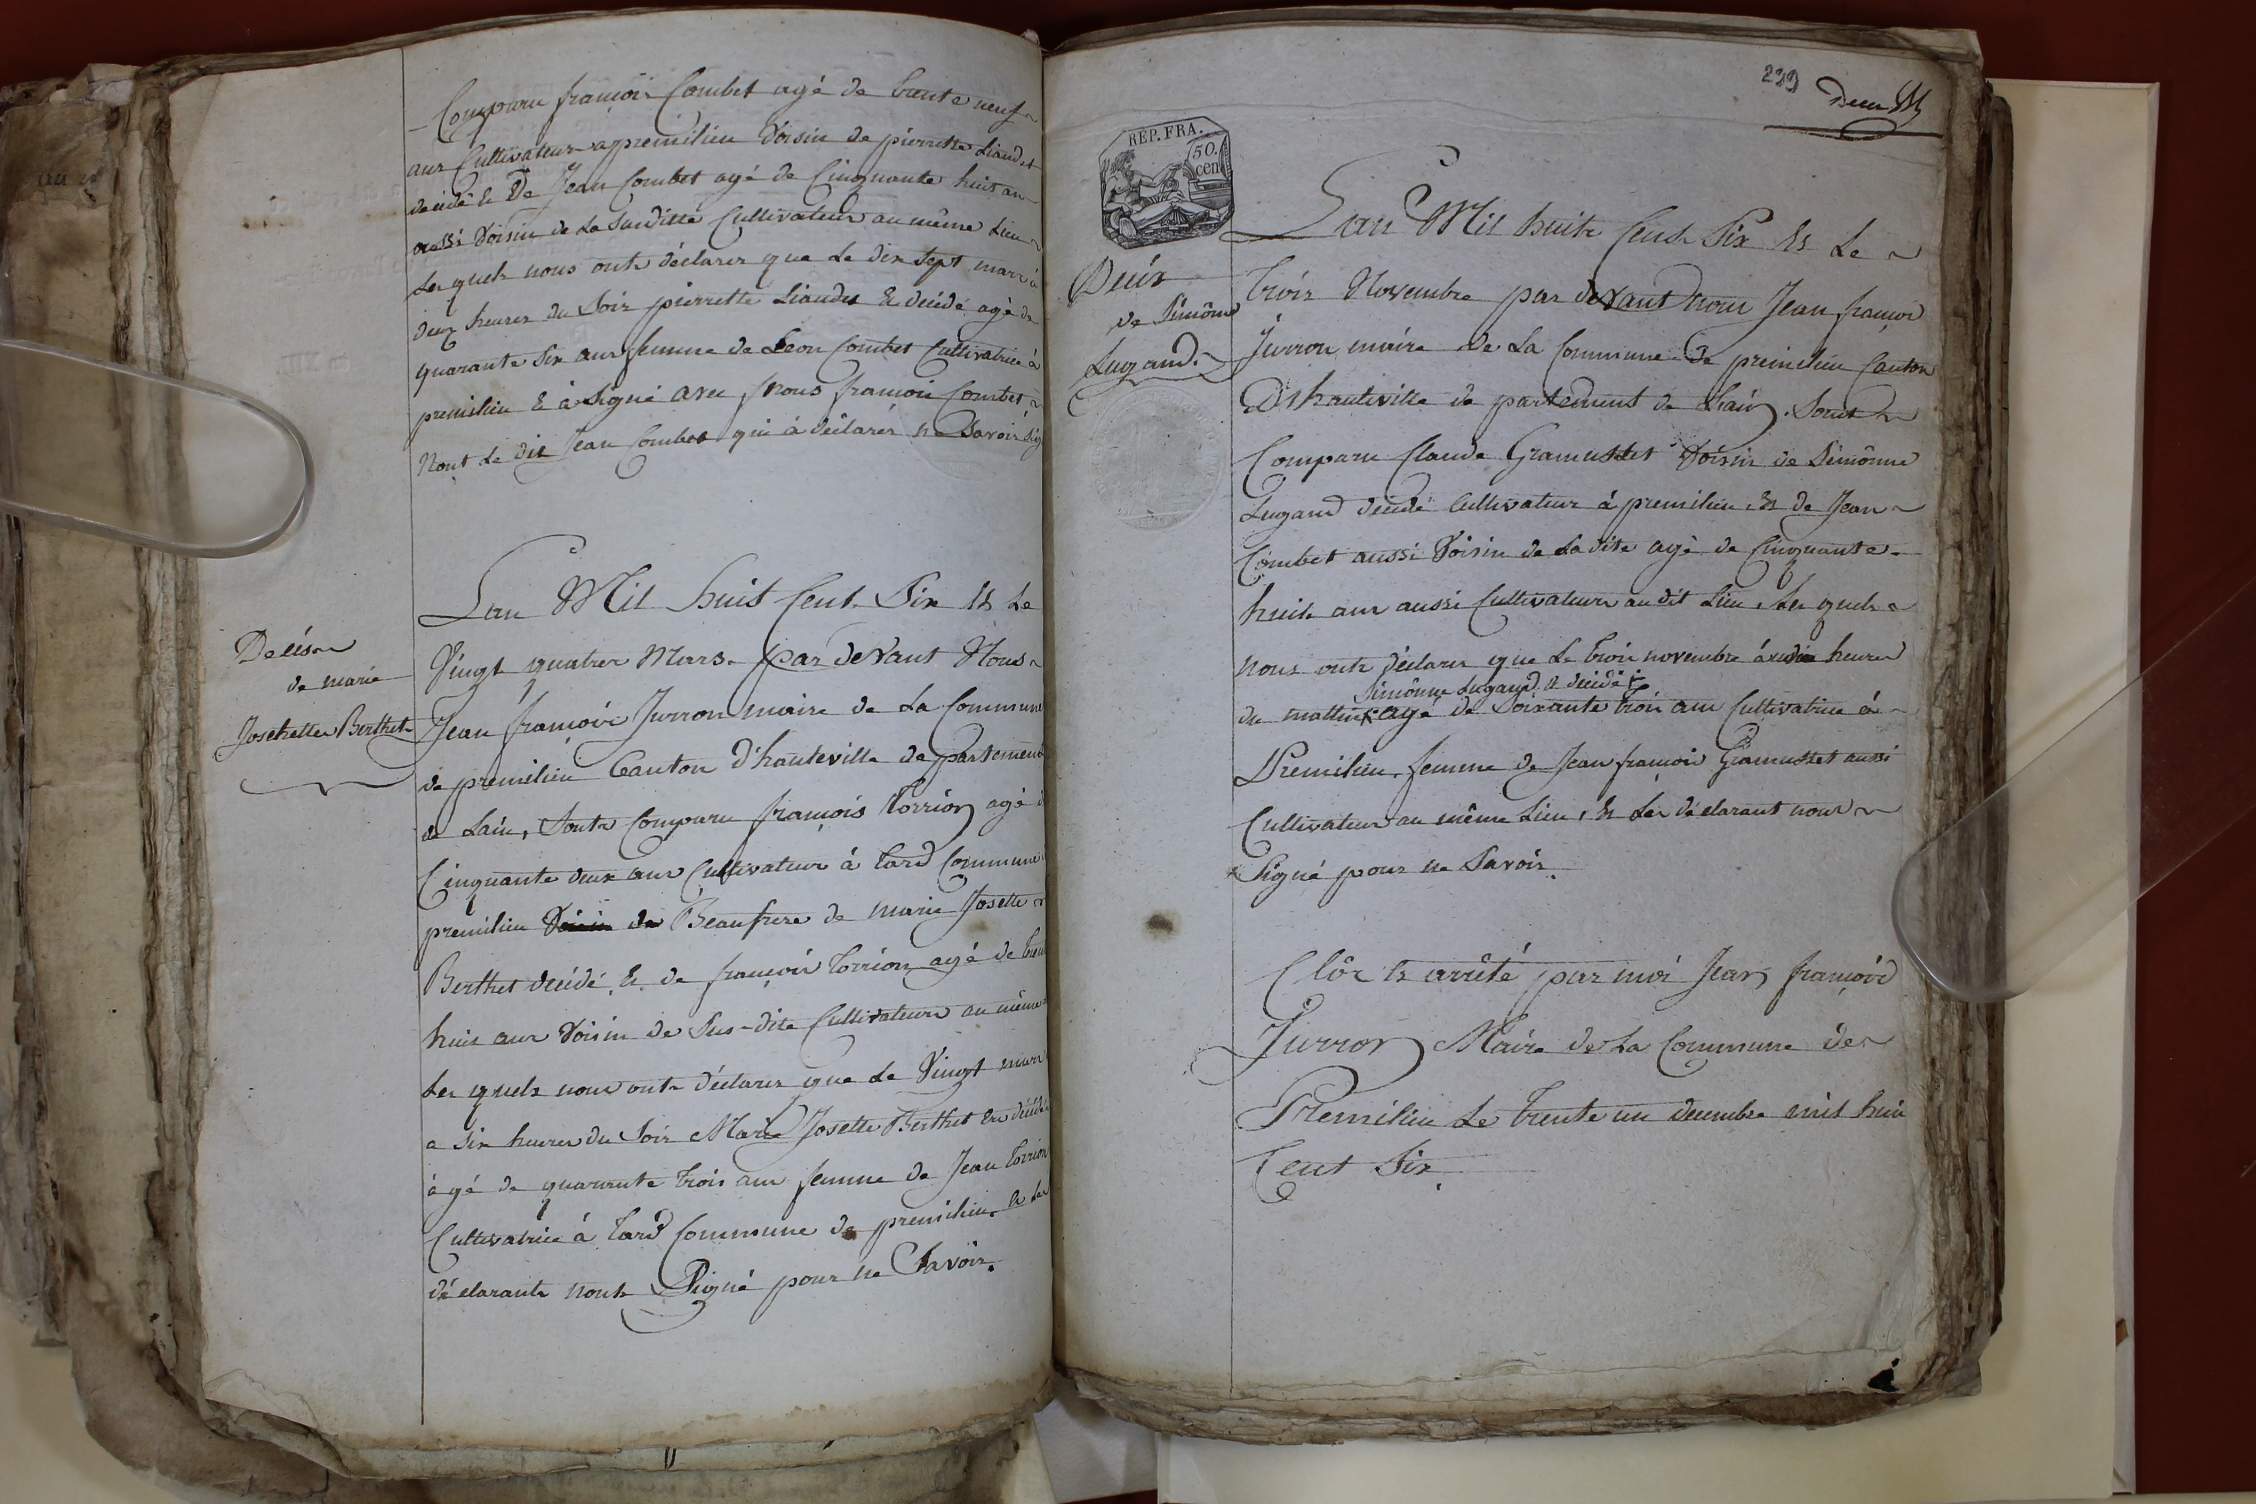 Comparu françois Combet agé de trente neuf
ans Cultivateur a premilieu Voisin de pierrette Liaudet
décidé & De Jean Combet agé de Cinquante huit an
aussi Voisin de La Susditte Cultivateur au même Lieu
Les quels nous onts déclarer que Le dix Sept mars à
deux heures du Soir pierrette Liaudet & décidé agé de
quarante Six ans femme de Leon Combet Cultivatrice à
premilieu & à Signé avec Nous françois Combet
Nont Le dit Jean Combet qui à déclarér ne Savoir Sig
Lan Mil huit Cent Six Et Le
Vingt quatrer Mars par devant Nous
Décés
de marie
Josehette Berthet
Jean françois Jurron maire de La Commune
de premilieu Canton d'hauteville de partement
de Lain, Sonts Comparu françois torrion agé
Cinquante deux ans Cultivateur à tard Commune
premilieu Voisin de Beaufrere de marie Josette
Berthet décidé & de françois torrion agé de
huit ans Voisin de Sus-dite Cultivateur au même
Les quels nous onts déclarer que Le Vingt mars
a Six heures du Soir Marie Josette Berthet En décidé
àgé de quarante trois ans femme de Jean torrion
Cultivatrice à tard Commune de premilieu & Les
déclarants nonts Signé pour ne Savoir.
239
Deux
REP. FRA.
50.
cen
Lan Mil huit Cent Six Et Le
Décés
de Simône
Lugand.
trois Novembre par devant nous Jean françois
Jurron maire de La Commune de premilieu Canton
Dhauteville de partement de Lain. Sont
Comparu Claude Gramusset Voisin de Simônne
Lugand décidé Cultivateur à premilieu Et de Jean
Combet aussi Voisin de La dite agé de Cinquante
huit ans aussi Cultivateur au dit Lieu, Les quels
nous onts déclarer que Le trois novembre à heures
Simônne Lugand & décidé
du mattin agé de Soixante trois ans Cultivatrice à
Premilieu femme de Jean françois Gramusset aussi
Cultivateur au même Lieu, Et Les déclarant nont
Signé pour ne Savoir.
Clôs Et arrêté par moi Jean françois
Jurron Maire de La Commune de
Premilieu Le trente un décembre mil huit
Cent Six.